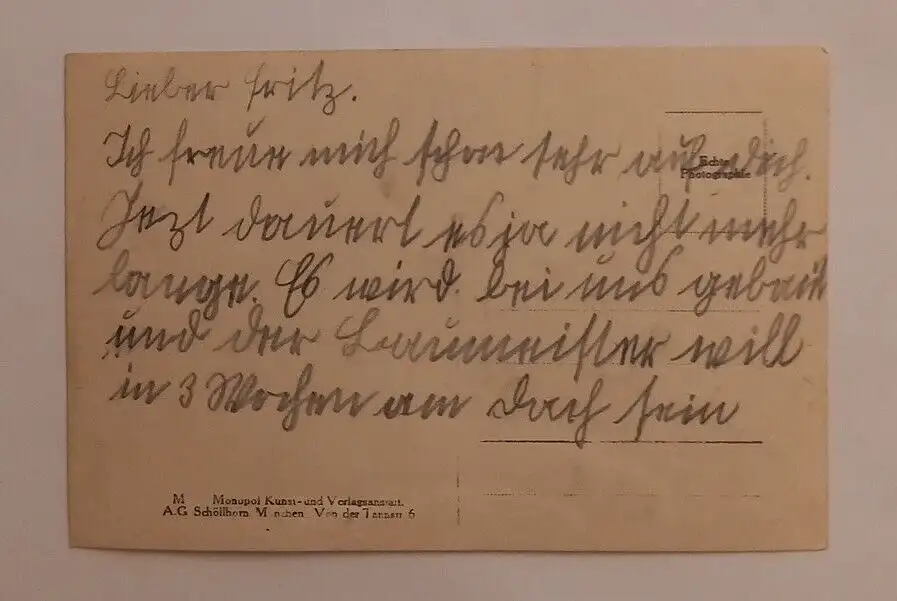 Lieber Fritz.
Ich freue mich schon sehr auf dich.
Jezt dauert es ja nicht mehr
lange. Es wird bei uns gebaut
und der Baumeister will
in 3 Wochen am Dach sein
Echte
Photographie
M Monopol Kunst- und Verlagsanstalt.
A.G Schöllhorn München Von der Tannstr 6